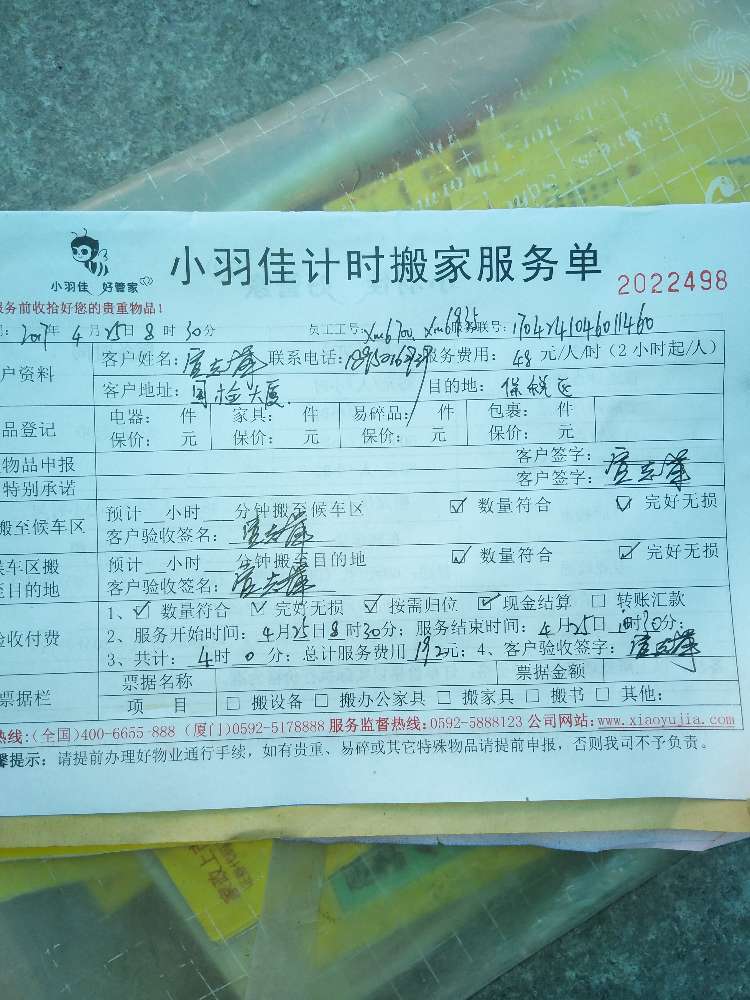 小羽佳 好管家
小羽佳计时搬家服务单
2022498
务前收拾好您的贵重物品!
2017年 4 月 25 日 8 时 30 分 员工工号: Xm6700、Xm6935 服务联号: 1704241046011460
户资料 客户姓名: 联系电话: 服务费用: 48 元/人/时 (2小时起/人)
客户地址: 国检大厦 目的地: 保税区
品登记 电器: 件 家具: 件 易碎品: 件 包裹: 件
保价: 元 保价: 元 保价: 元 保价: 元
物品申报 客户签字:
特别承诺 客户签字:
搬至候车区 预计__小时___分钟搬至候车区 ☑ 数量符合 ☑ 完好无损
客户验收签名:
候车区搬 预计__小时___分钟搬至目的地 ☑ 数量符合 ☑ 完好无损
至目的地 客户验收签名:
验收付费 1、☑ 数量符合 ☑ 完好无损 ☑ 按需归位 ☑ 现金结算 □ 转账汇款
2、服务开始时间: 4 月 25 日 8 时 30 分; 服务结束时间: 4 月 25 日 时 30 分;
3、共计: 4 时 0 分; 总计服务费用 192 元; 4、客户验收签字:
票据栏 票据名称 票据金额
项 目 □ 搬设备 □ 搬办公家具 □ 搬家具 □ 搬书 □ 其他:
热线:(全国)400-6655-888 (厦门)0592-5178888 服务监督热线:0592-5888123 公司网站:www.xiaoyujia.com
馨提示: 请提前办理好物业通行手续, 如有贵重、易碎或其它特殊物品请提前申报, 否则我司不予负责。